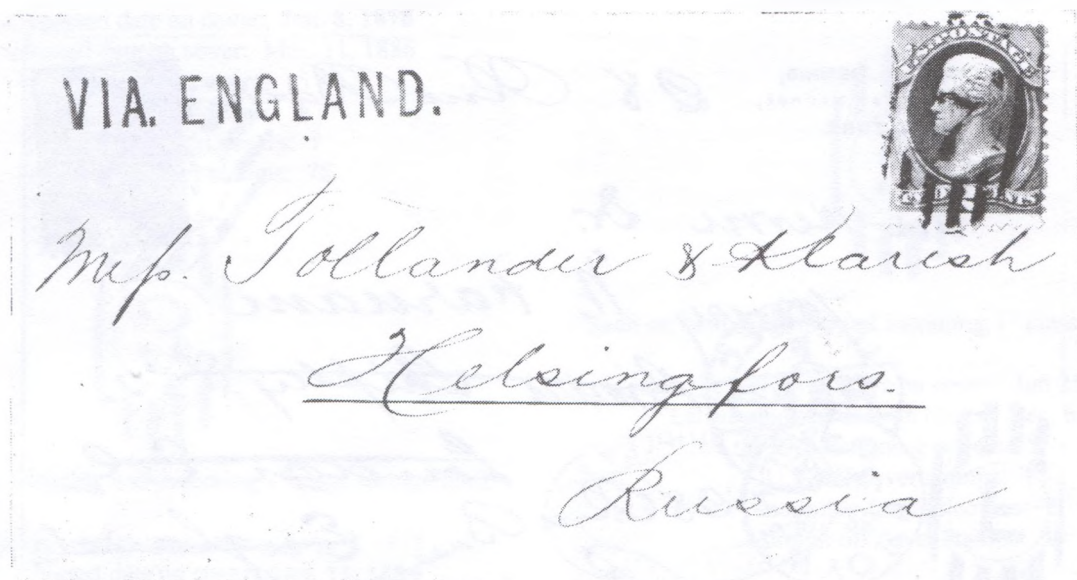 VIA. ENGLAND.
U.S. POSTAGE
Mess. Tollander & Klarish
Helsingfors.
Russia